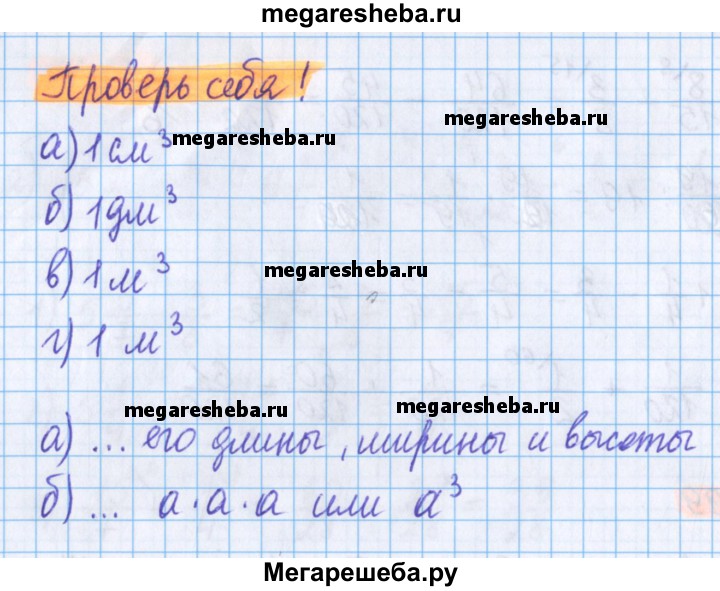 megaresheba.ru
Проверь себя!
megaresheba.ru
а) 1 см³ megaresheba.ru
б) 1 дм³
в) 1 м³
megaresheba.ru
г) 1 м³
megaresheba.ru
megaresheba.ru
а) ... его длины, ширины и высоты
б) ... a·a·a или a³
Мегарешеба.ру